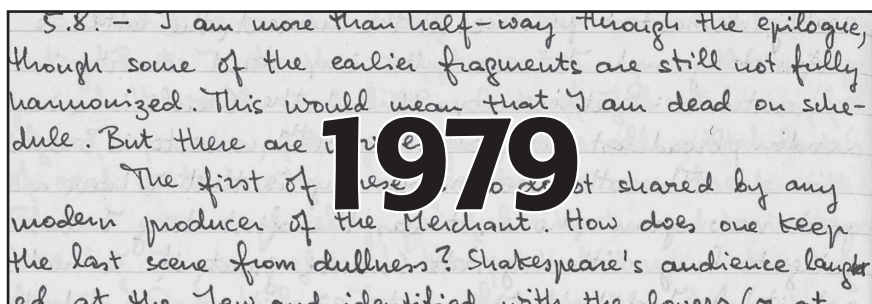 5.8. – I am more than half-way through the epilogue,
though some of the earlier fragments are still not fully
harmonized. This would mean that I am dead on sche-
dule. But there are
1979
The first of shared by any
modern producer of the Merchant. How does one keep
the last scene from dullness? Shakespeare's audience
ed at the Jew and identified with the lovers (or at